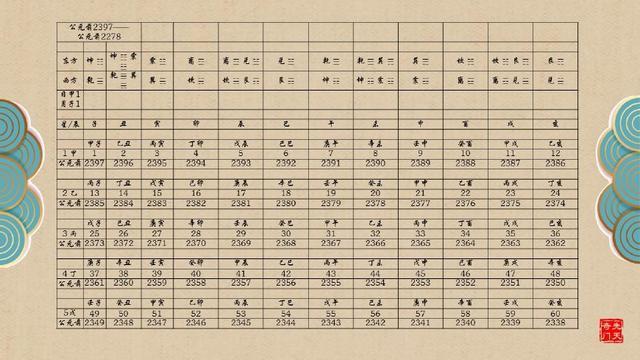 公元前2397——
公元前2278
东方
西方
日甲1
月子1
星/辰 子 丑 寅 卯 辰 巳 午 未 申 酉 戌 亥
甲子 乙丑 丙寅 丁卯 戊辰 己巳 庚午 辛未 壬申 癸酉 甲戌 乙亥
1甲 1 2 3 4 5 6 7 8 9 10 11 12
公元前 2397 2396 2395 2394 2393 2392 2391 2390 2389 2388 2387 2386
丙子 丁丑 戊寅 己卯 庚辰 辛巳 壬午 癸未 甲申 乙酉 丙戌 丁亥
2乙 13 14 15 16 17 18 19 20 21 22 23 24
公元前 2385 2384 2383 2382 2381 2380 2379 2378 2377 2376 2375 2374
戊子 己丑 庚寅 辛卯 壬辰 癸巳 甲午 乙未 丙申 丁酉 戊戌 己亥
3丙 25 26 27 28 29 30 31 32 33 34 35 36
公元前 2373 2372 2371 2370 2369 2368 2367 2366 2365 2364 2363 2362
庚子 辛丑 壬寅 癸卯 甲辰 乙巳 丙午 丁未 戊申 己酉 庚戌 辛亥
4丁 37 38 39 40 41 42 43 44 45 46 47 48
公元前 2361 2360 2359 2358 2357 2356 2355 2354 2353 2352 2351 2350
壬子 癸丑 甲寅 乙卯 丙辰 丁巳 戊午 己未 庚申 辛酉 壬戌 癸亥
5戊 49 50 51 52 53 54 55 56 57 58 59 60
公元前 2349 2348 2347 2346 2345 2344 2343 2342 2341 2340 2339 2338
先天
奇门